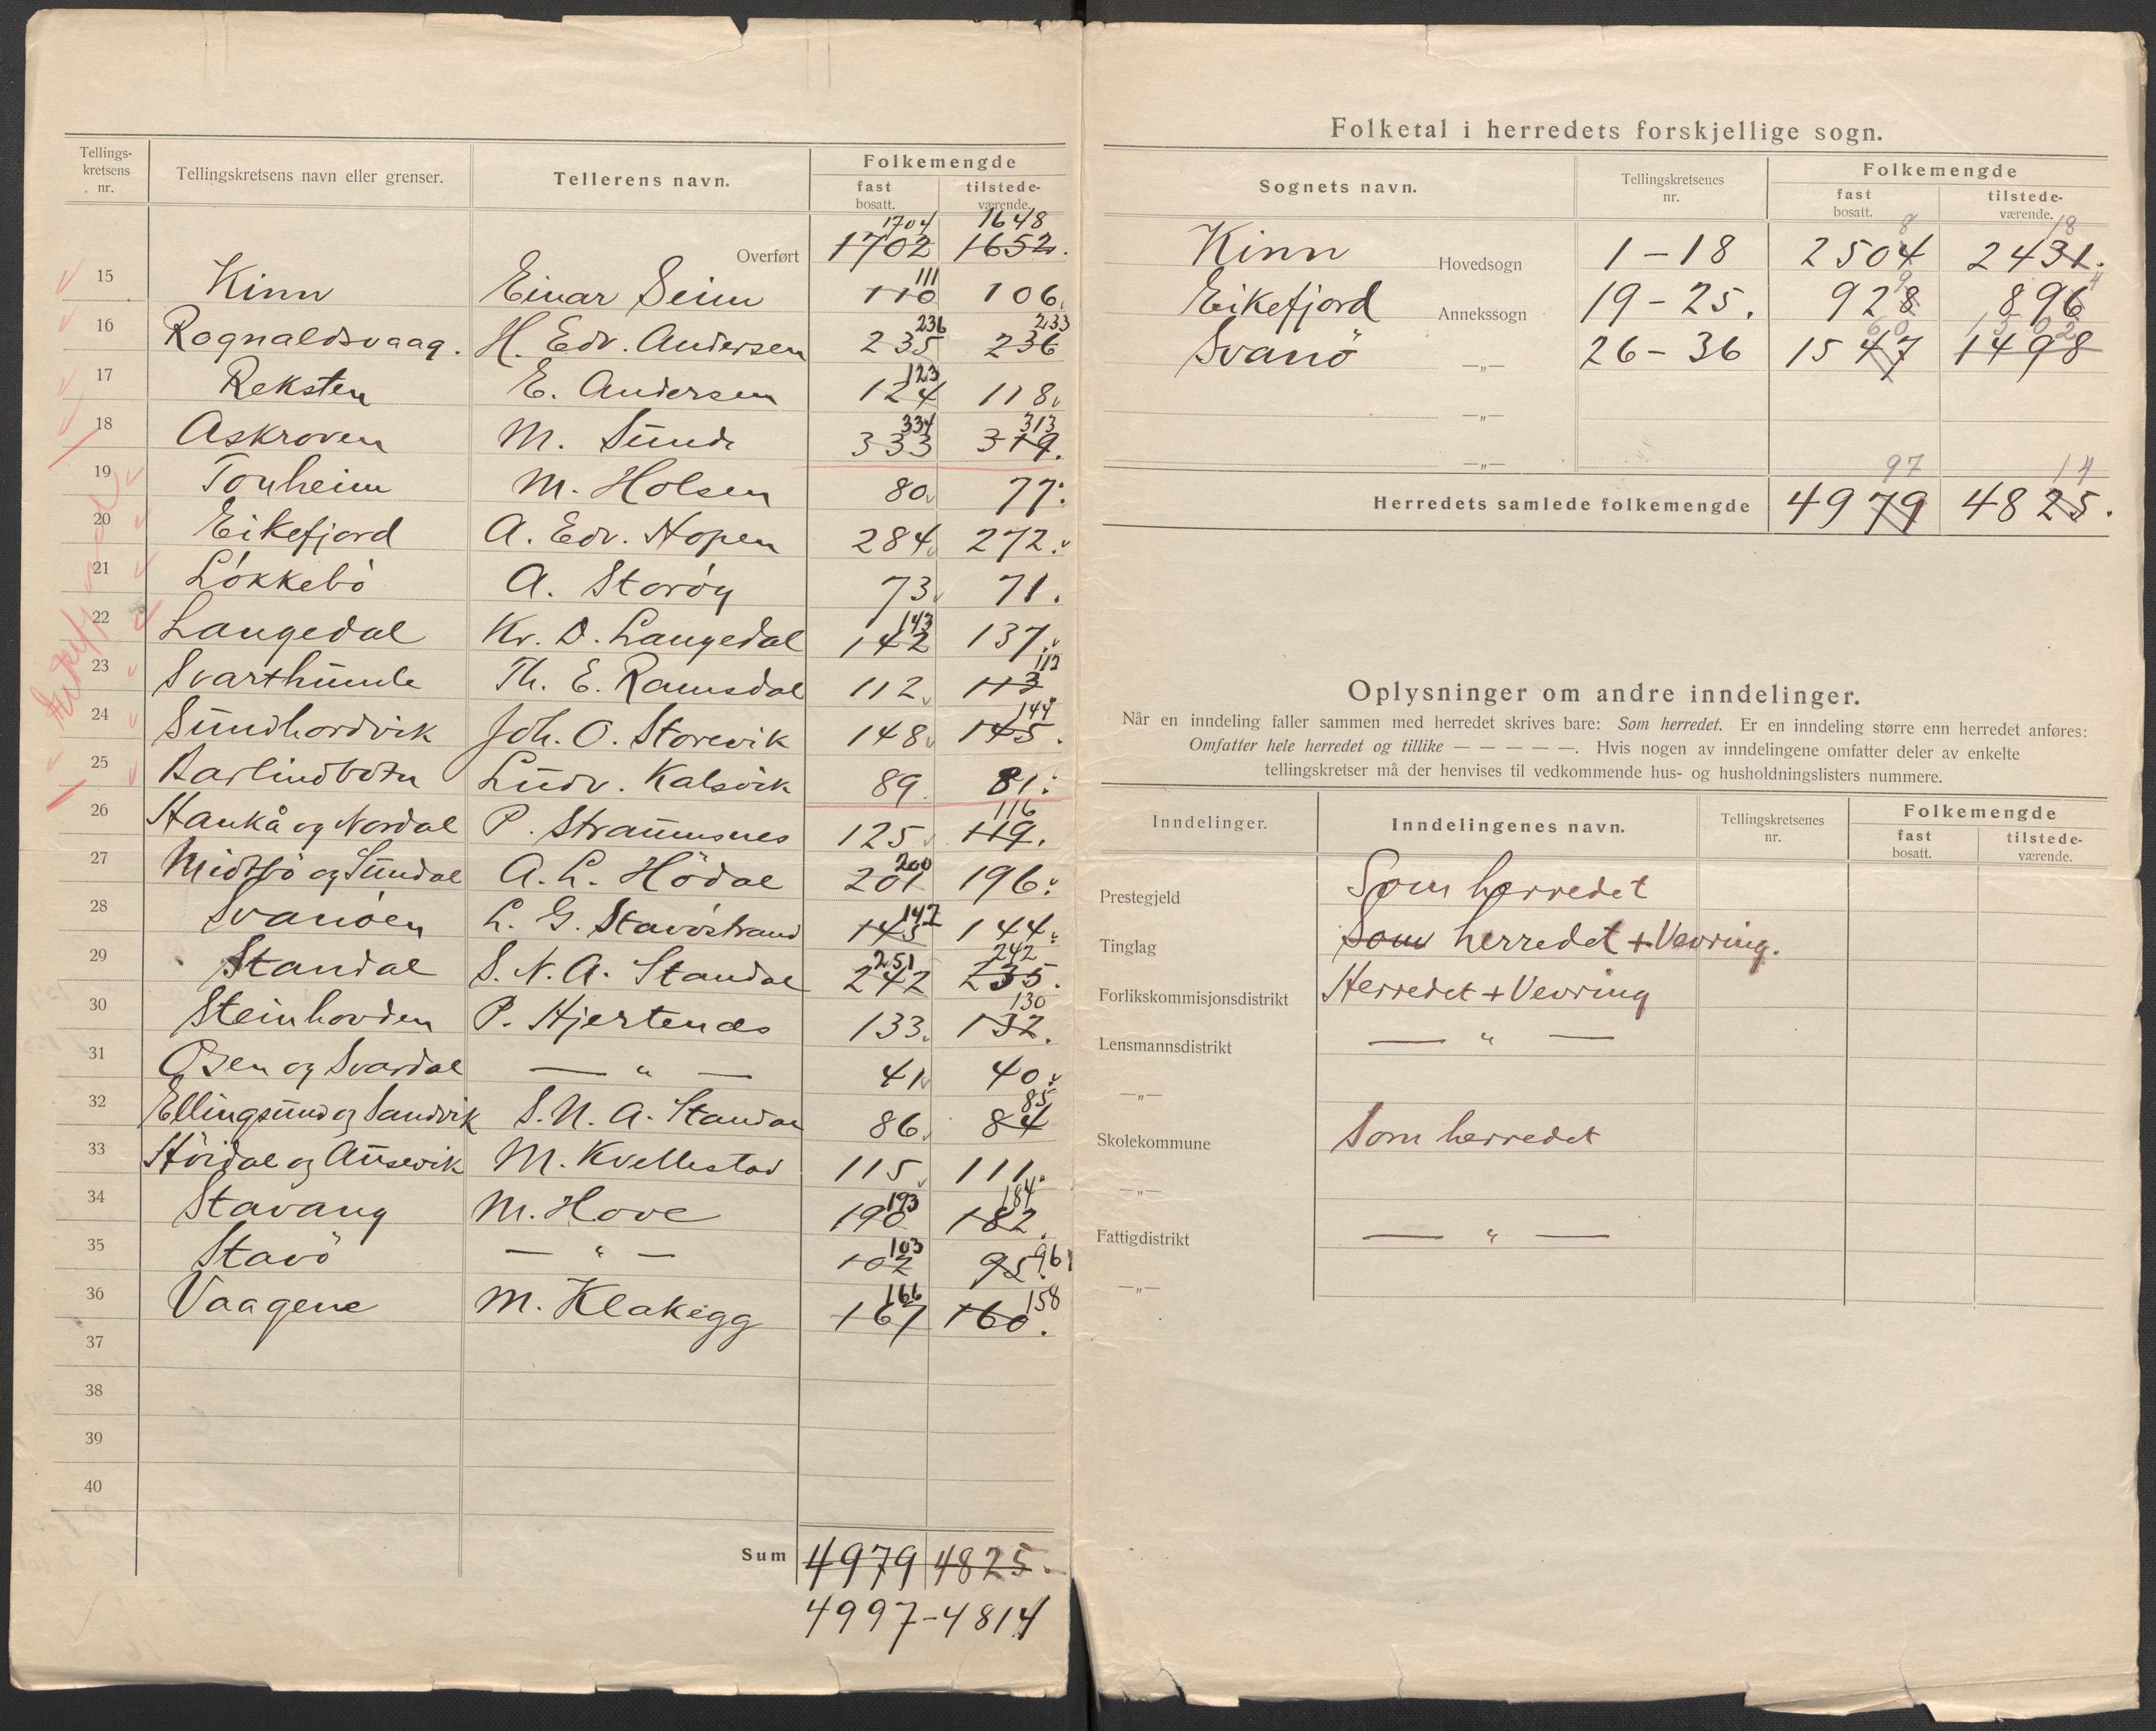 Tellings-kretsens nr. Tellingskretsens navn eller grenser. Tellerens navn. Folkemengde fast bosatt. tilstede-værende.
1704 1648
Overført 1702 1652.
15 Kinn Einar Seim 110 111 106.
16 Rognaldsvaag. H. Edv. Andersen 235 236 236 233
17 Reksten E. Andersen 124 123 118.
18 Askroven M. Sunde 333 334 319. 313
19 Tonheim M. Holsen 80. 77.
20 Eikefjord A. Edv. Hopen 284. 272.
21 Løkkebø A. Storøy 73. 71.
22 Langedal Kr. D. Langedal 142 143 137.
23 Svarthumle Th. E. Ramsdal 112. 113. 112
24 Sundhordvik Joh. O. Storevik 148. 145. 144
25 Barlindbotn Ludv. Kalsvik 89. 81.
26 Haukå og Nordal P. Straumsnes 125. 119. 116
27 Midtbö og Sundal A. L. Hödal 201 200 196.
28 Svanöen L. G. Stavöstrand 143 142 144.
29 Standal S. N. A. Standal 242 251 235. 242
30 Steinhovden P. Hjertenæs 133. 132. 130
31 Osen og Svardal — " — 41. 40.
32 Ellingsund og Sandvik S. N. A. Standal 86. 84 85
33 Hördal og Ausevik M. Kvellestad 115. 111.
34 Stavang M. Hove 190 193 182. 184
35 Stavö — " — 102 103 95. 96
36 Vaagene M. Klakegg 167 166 160. 158
37
38
39
40
Sum 4979 4825.
4997-4814
Eikefjord
Folketal i herredets forskjellige sogn.
Sognets navn. Tellingskretsenes nr. Folkemengde fast bosatt. tilstede-værende.
Kinn Hovedsogn 1-18 2504 8 2431. 18
Eikefjord Annekssogn 19-25. 928 9 896 4
Svanö —„— 26-36 1547 60 1498 1502
—„—
—„—
97 14
Herredets samlede folkemengde 4979 4825.
Oplysninger om andre inndelinger.
Når en inndeling faller sammen med herredet skrives bare: Som herredet. Er en inndeling større enn herredet anføres:
Omfatter hele herredet og tillike — — — — —. Hvis nogen av inndelingene omfatter deler av enkelte
tellingskretser må der henvises til vedkommende hus- og husholdningslisters nummere.
Inndelinger. Inndelingenes navn. Tellingskretsenes nr. Folkemengde fast bosatt. tilstede-værende.
Prestegjeld Som herredet
Tinglag Som herredet + Vevring.
Forlikskommisjonsdistrikt Herredet + Vevring
Lensmannsdistrikt — " —
—„—
Skolekommune Som herredet
—„—
Fattigdistrikt — " —
—„—